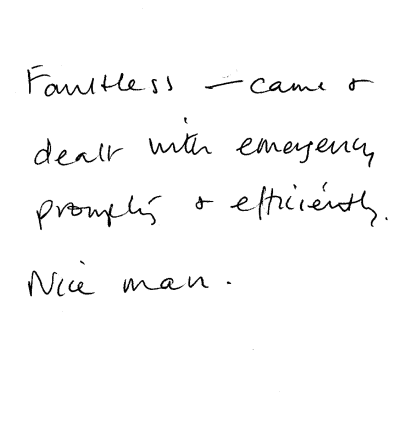 Faultless – came &
dealt with emergency
promptly & efficiently.
Nice man.